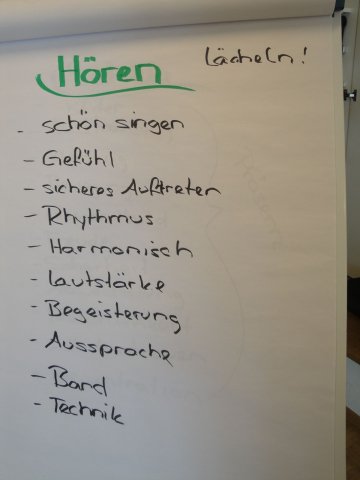 Hören
lächeln!
- schön singen
- Gefühl
- sicheres Auftreten
- Rhythmus
- Harmonisch
- Lautstärke
- Begeisterung
- Aussprache
- Band
- Technik